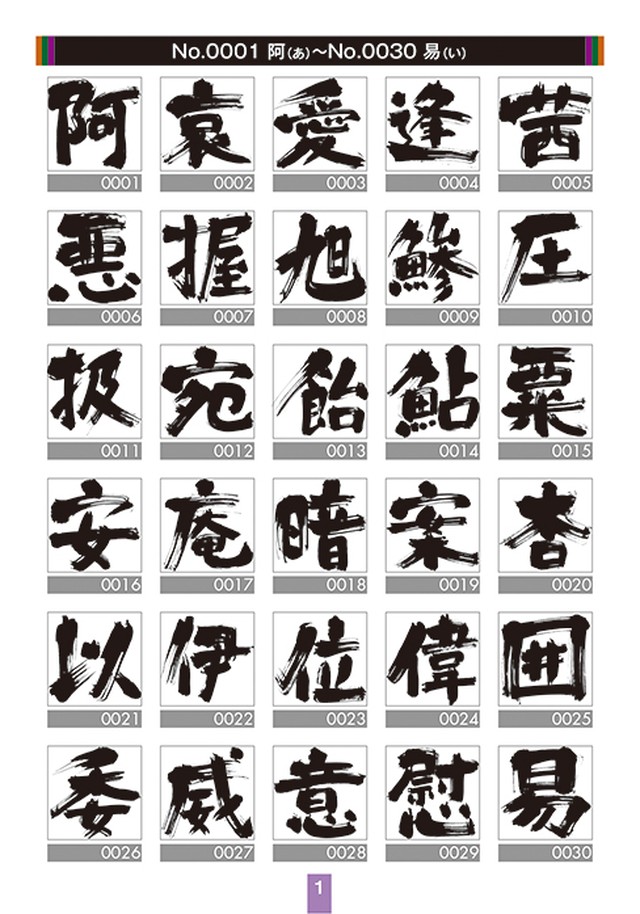 No.0001 阿(あ)〜No.0030 易(い)
阿 哀 愛 逢 茜
0001 0002 0003 0004 0005
悪 握 旭 鯵 圧
0006 0007 0008 0009 0010
扱 宛 飴 鮎 粟
0011 0012 0013 0014 0015
安 庵 暗 案 杏
0016 0017 0018 0019 0020
以 伊 位 偉 囲
0021 0022 0023 0024 0025
委 威 意 慰 易
0026 0027 0028 0029 0030
1